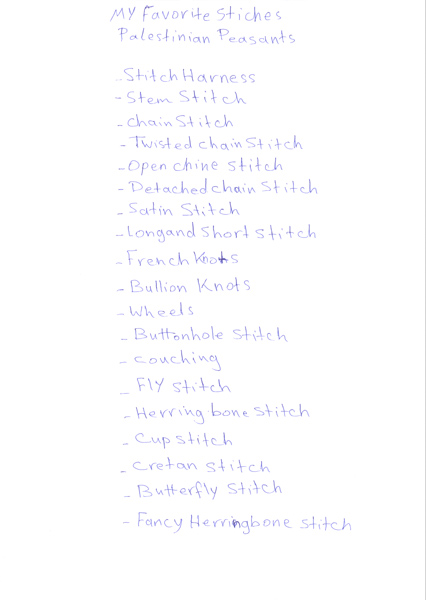 My Favorite Stiches
Palestinian Peasants
- Stitch Harness
- Stem Stitch
- chain Stitch
- Twisted chain Stitch
- Open chine stitch
- Detached chain Stitch
- Satin Stitch
- Long and Short stitch
- French Knots
- Bullion Knots
- Wheels
- Buttonhole stitch
- couching
- FLy stitch
- Herring bone stitch
- Cup stitch
- Cretan stitch
- Butterfly stitch
- Fancy Herringbone stitch